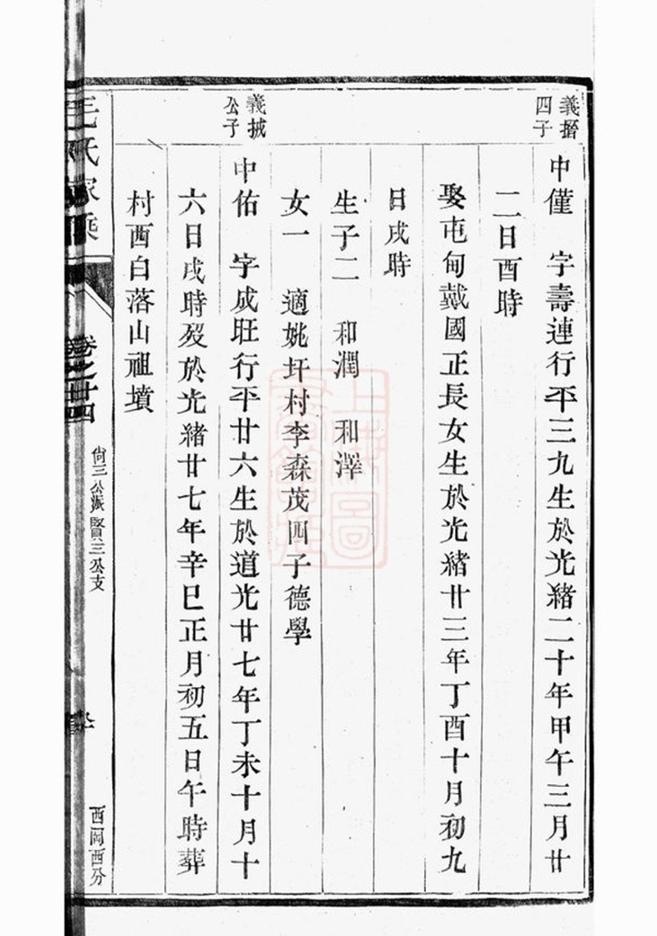 義搢
四子
中僅 字壽連行平三九生於光緒二十年甲午三月廿
二日酉時
娶屯甸戴國正長女生於光緒廿三年丁酉十月初九
日戌時
生子二 和潤 和澤
女一 適姚坪村李森茂四子德學
義掝
公子
中佑 字成旺行平廿六生於道光廿七年丁未十月十
六日戌時歿於光緒廿七年辛巳正月初五日午時葬
村西白落山祖墳
毛氏家乘
卷之廿四
尙三公派賢三公支
西岡西分